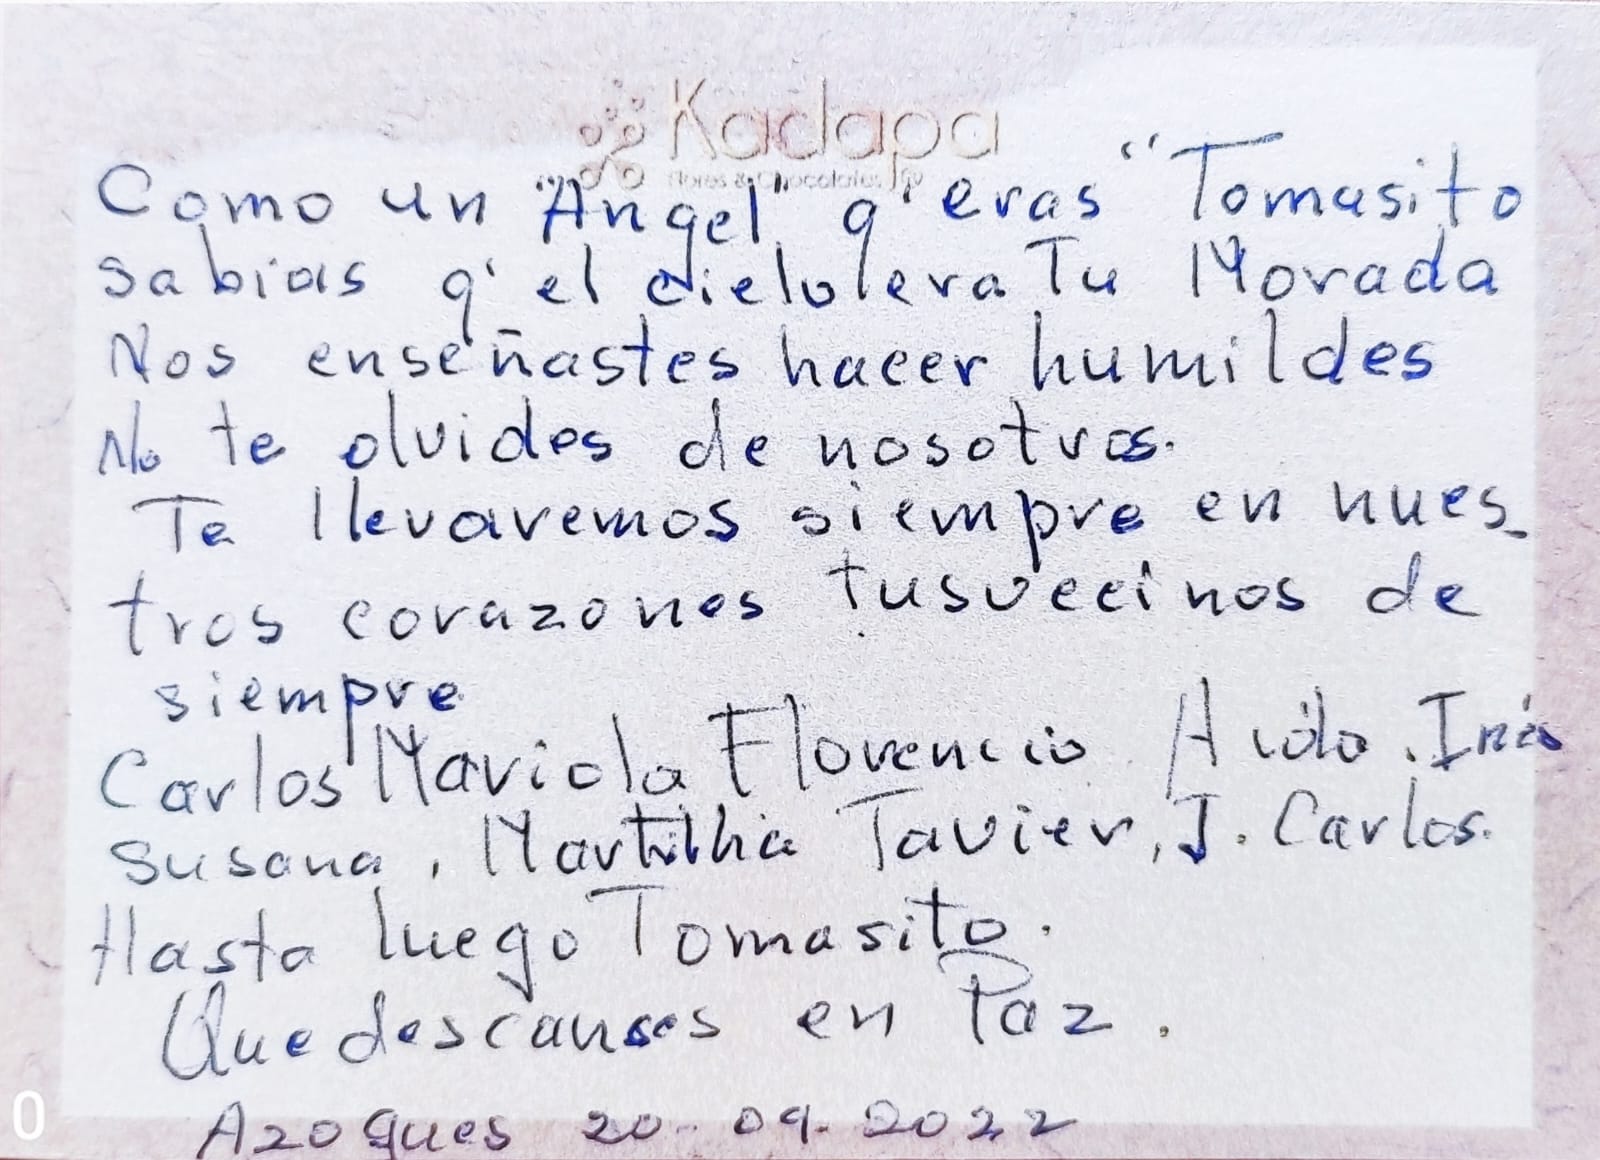 Kadapa
Flores & Chocolates
Como un "Angel" q' eras "Tomasito
sabias q' el cielo era Tu Morada
Nos enseñastes hacer humildes
No te olvides de nosotros.
Te llevaremos siempre en nues_
tros corazones tus vecinos de
siempre
Carlos Mariola Florencio Aida. Inés
Susana, Javier, J. Carlos.
Hasta luego Tomasito.
Que descanses en Paz.
Azogues 20-09-2022
0